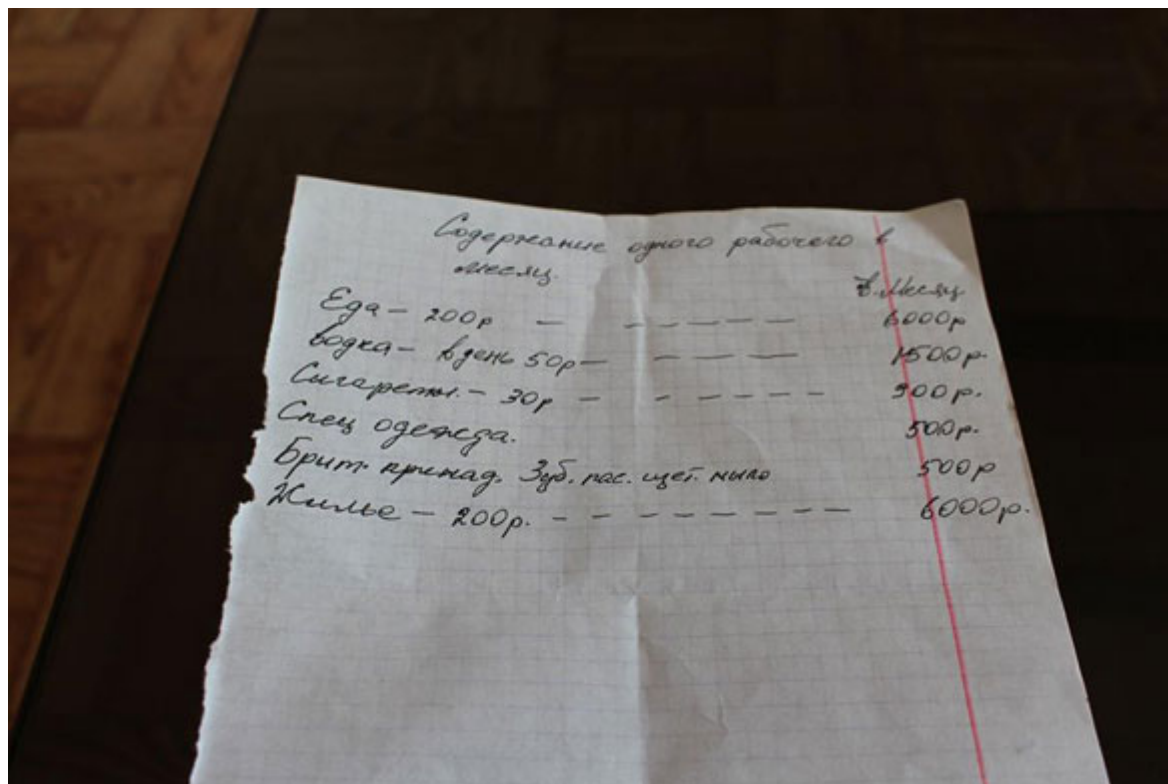 Содержание одного рабочего в
месяц.
в. Месяц
Еда – 200р – – – – – – – 6000р
водка – в день 50р – – – – – 1500р.
Сигареты. – 30р – – – – – – – 900р.
Спец одежда. 500р.
Брит. принад. Зуб. пас. щет. мыло 500р
Жилье – 200р. – – – – – – – – – 6000р.